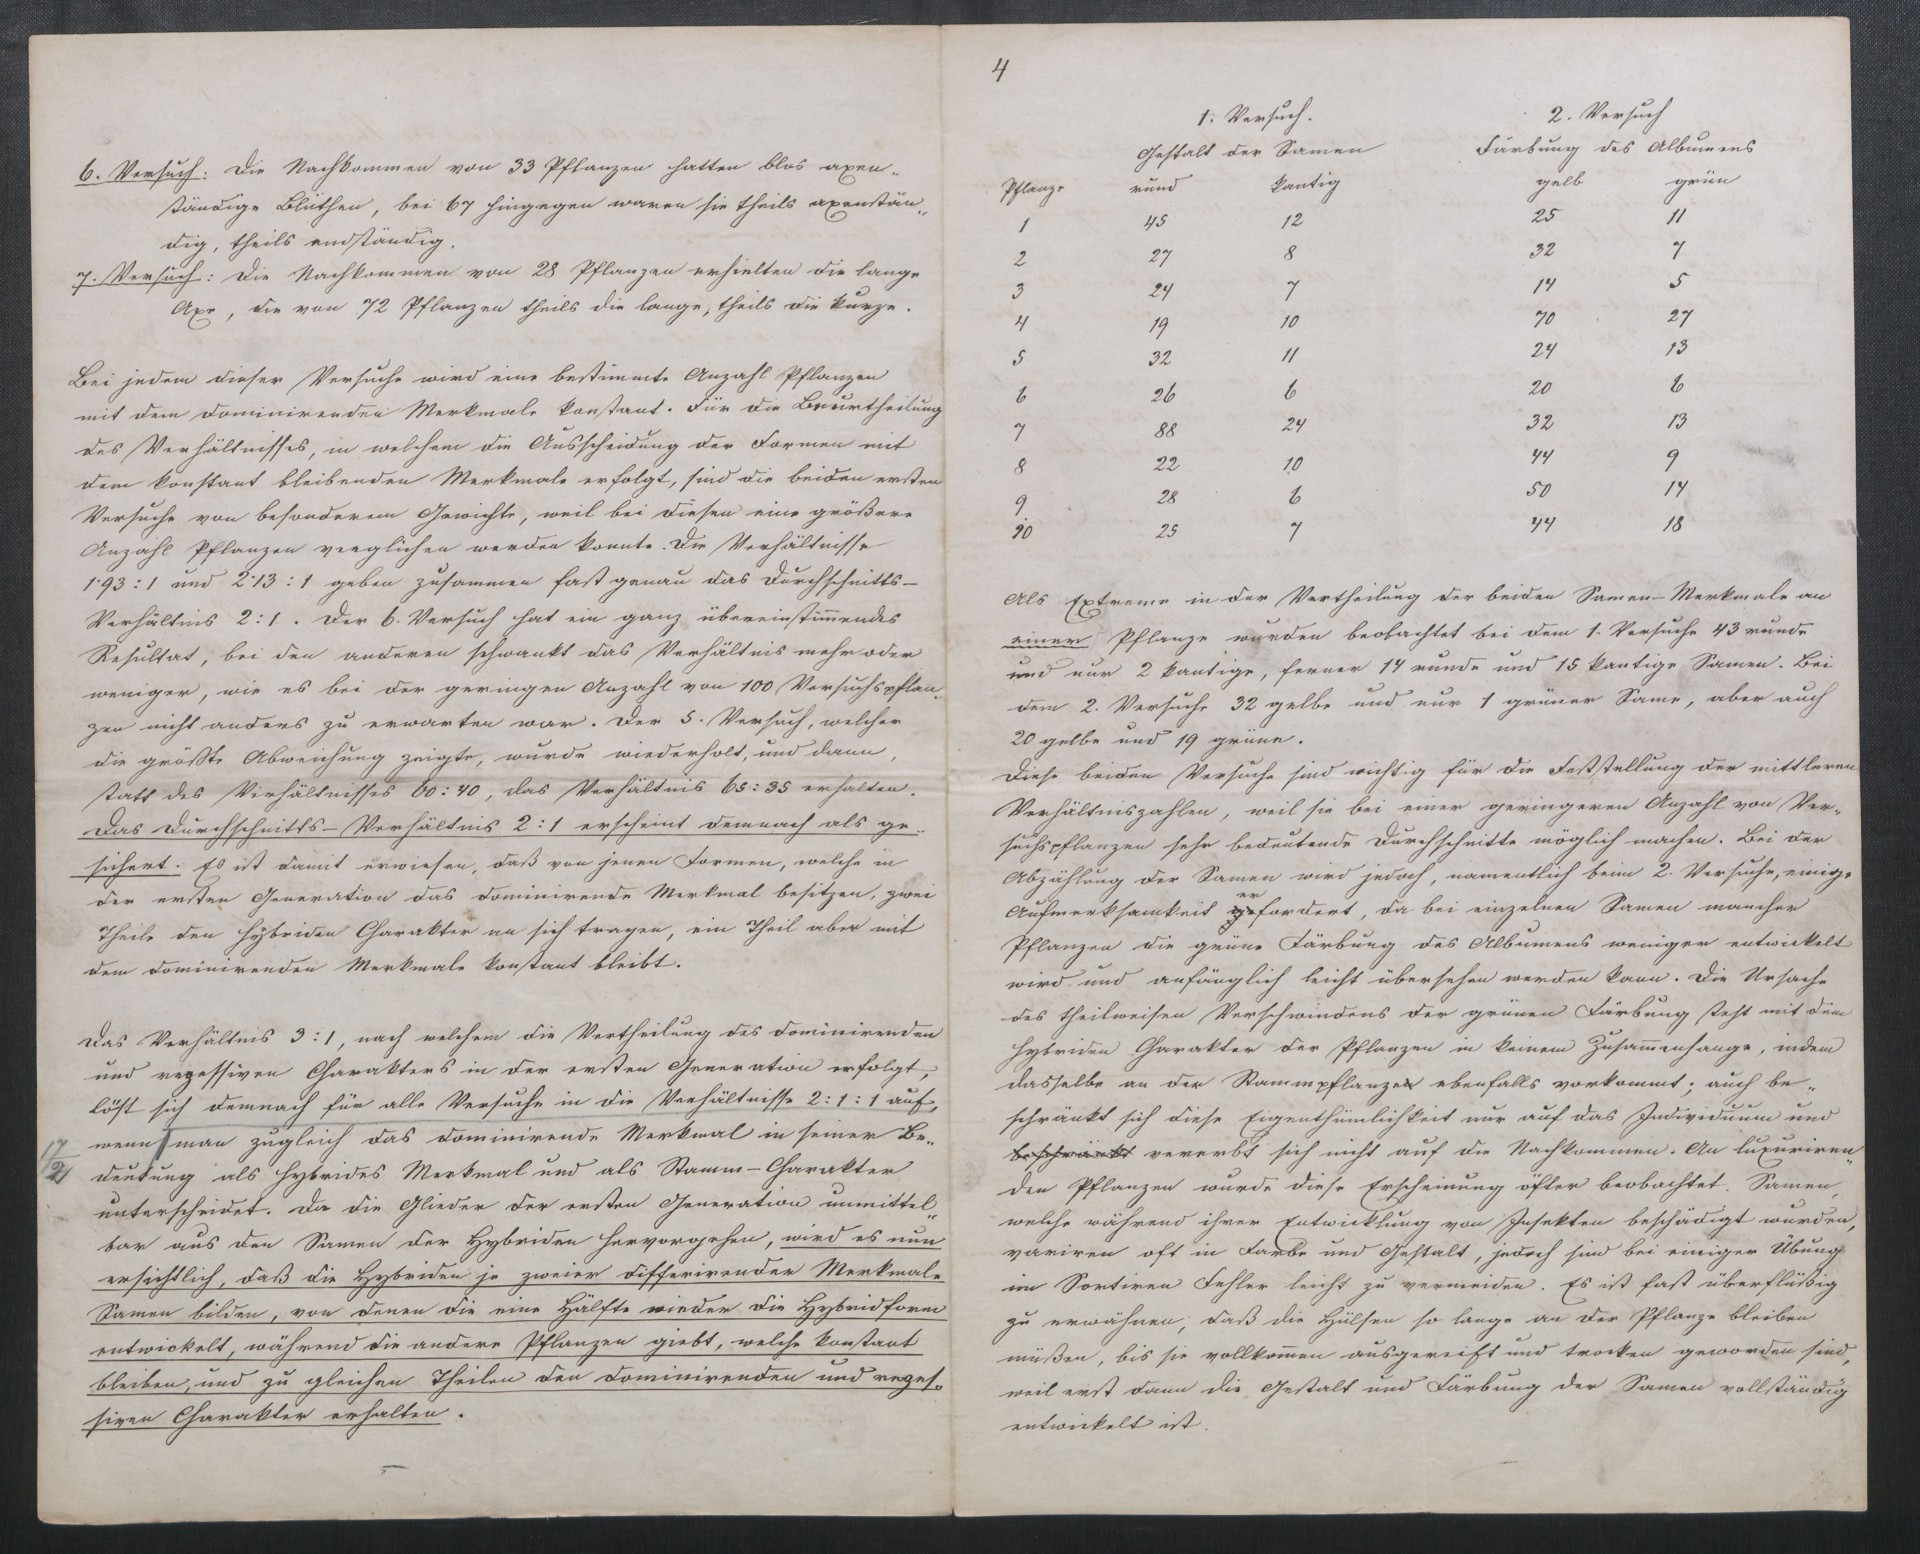 6. Versuch: Die Nachkommen von 33 Pflanzen hatten blos axen-
ständige Blüthen, bei 67 hingegen waren sie theils axenstän-
dig, theils endständig.
7. Versuch: Die Nachkommen von 28 Pflanzen erhielten die lange
Axe, die von 72 Pflanzen theils die lange, theils die kurze.
Bei jedem dieser Versuche wird eine bestimmte Anzahl Pflanzen
mit dem dominirenden Merkmale konstant. Für die Beurtheilung
des Verhältnisses, in welchem die Ausscheidung der Formen mit
dem konstant bleibenden Merkmale erfolgt, sind die beiden ersten
Versuche von besonderem Gewichte, weil bei diesen eine größere
Anzahl Pflanzen verglichen werden konnte. Die Verhältnisse
1·93 : 1 und 2·13 : 1 geben zusammen fast genau das Durchschnitts-
Verhältnis 2 : 1. Der 6. Versuch hat ein ganz übereinstim̅endes
Resultat, bei den anderen schwankt das Verhältnis mehr oder
weniger, wie es bei der geringen Anzahl von 100 Versuchspflan-
zen nicht anders zu erwarten war. Der 5. Versuch, welcher
die größte Abweichung zeigte, wurde wiederholt, und dann,
statt des Verhältnisses 60 : 40, das Verhältnis 65 : 35 erhalten.
Das Durchschnitts-Verhältnis 2 : 1 erscheint demnach als ge-
sichert. Es ist damit erwiesen, daß von jenen Formen, welche in
der ersten Generation das dominirende Merkmal besitzen, zwei
Theile den hybriden Charakter an sich tragen, ein Theil aber mit
dem dominirenden Merkmale konstant bleibt.
Das Verhältnis 3 : 1, nach welchem die Vertheilung des dominirenden
und rezessiven Charakters in der ersten Generation erfolgt,
löst sich demnach für alle Versuche in die Verhältnisse 2 : 1 : 1 auf,
wenn man zugleich das dominirende Merkmal in seiner Be-
17/2
deutung als hybrides Merkmal und als Stamm-Charakter
unterscheidet. Da die Glieder der ersten Generation unmittel-
bar aus den Samen der Hybriden hervorgehen, wird es nun
ersichtlich, daß die Hybriden je zweier differirender Merkmale
Samen bilden, von denen die eine Hälfte wieder die Hybridform
entwickelt, während die andere Pflanzen giebt, welche konstant
bleiben, und zu gleichen Theilen den dominirenden und rezes-
siven Charakter erhalten.
4
1. Versuch. 2. Versuch
Gestalt der Samen Färbung des Albumens
Pflanze rund kantig gelb grün
1 45 12 25 11
2 27 8 32 7
3 24 7 14 5
4 19 10 70 27
5 32 11 24 13
6 26 6 20 6
7 88 24 32 13
8 22 10 44 9
9 28 6 50 14
10 25 7 44 18
Als Extreme in der Vertheilung der beiden Samen-Merkmale an
einer Pflanze wurden beobachtet bei dem 1. Versuche 43 runde
und nur 2 kantige, ferner 14 runde und 15 kantige Samen. Bei
dem 2. Versuche 32 gelbe und nur 1 grüner Same, aber auch
20 gelbe und 19 grüne.
Diese beiden Versuche sind wichtig für die Feststellung der mittleren
Verhältniszahlen, weil sie bei einer geringeren Anzahl von Ver-
suchspflanzen sehr bedeutende Durchschnitte möglich machen. Bei der
Abzählung der Samen wird jedoch, namentlich beim 2. Versuche, einige
Aufmerksamkeit erfordert, da bei einzelnen Samen mancher
Pflanzen die grüne Färbung des Albumens weniger entwickelt
wird und anfänglich leicht übersehen werden kann. Die Ursache
des theilweisen Verschwindens der grünen Färbung steht mit dem
hybriden Charakter der Pflanzen in keinem Zusam̅enhange, indem
dasselbe an der Stammpflanze ebenfalls vorkommt; auch be-
schränkt sich diese Eigenthümlichkeit nur auf das Individuum und
beschränkt vererbt sich nicht auf die Nachkommen. An luxuriren-
den Pflanzen wurde diese Erscheinung öfter beobachtet. Samen,
welche während ihrer Entwicklung von Insekten beschädigt wurden,
variren oft in Farbe und Gestalt, jedoch sind bei einiger Übung
im Sortiren Fehler leicht zu vermeiden. Es ist fast überflüßig
zu erwähnen, daß die Hülsen so lange an der Pflanze bleiben
müßen, bis sie vollkom̅en ausgereift und trocken geworden sind,
weil erst dann die Gestalt und Färbung der Samen vollständig
entwickelt ist.